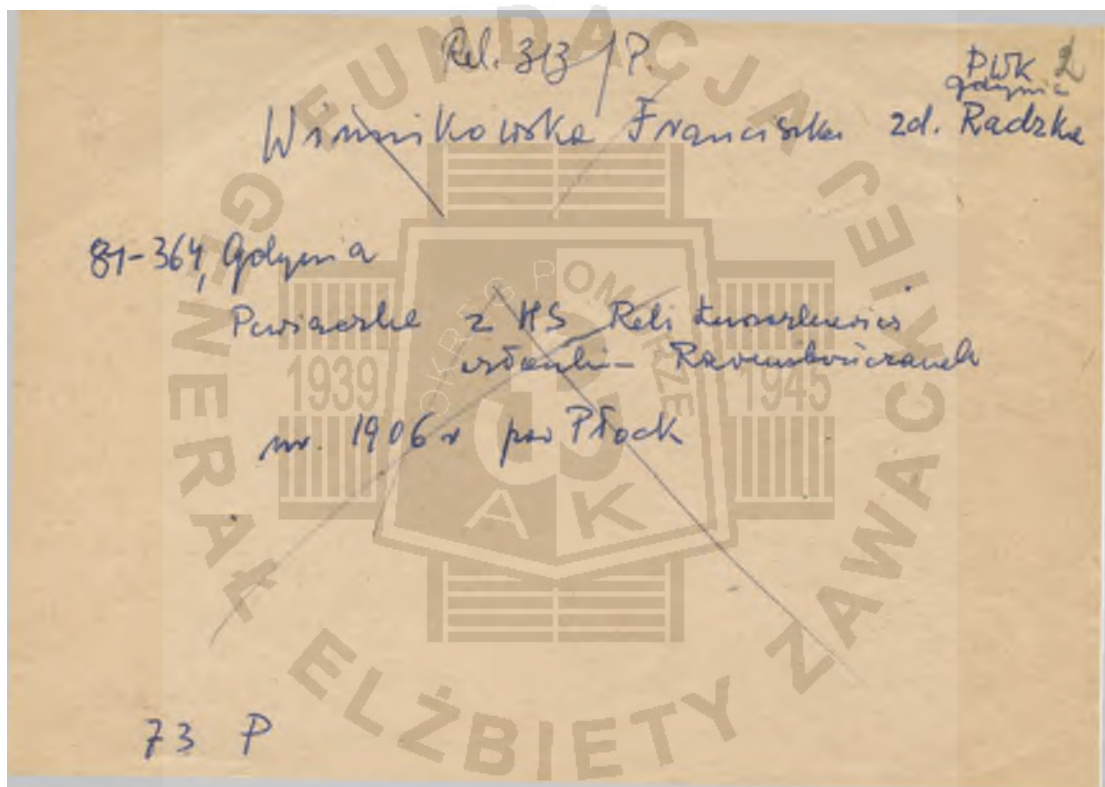 Rel. 313/P.
PWK 2
Gdynia
Winnikowska Franciszka zd. Radzka
81-364, Gdynia
Pewiaczka z HS Reli
Ravensbrüczanek
ur. 1906 r pow Płock
73 P
FUNDACJA GENERAŁ ELŻBIETY ZAWACKIEJ
OKRĘG POMORZE
1939
1945
AK